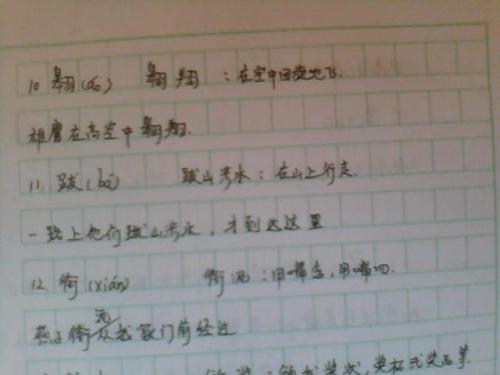 10 翱(áo) 翱翔:在空中回旋地飞.
雄鹰在高空中翱翔.
11. 跋(bá) 跋山涉水:在山上行走.
一路上他们跋山涉水,才到达这里
12. 衔(xián) 衔泥:用嘴含,用嘴叼.
燕子衔泥从我家门前经过